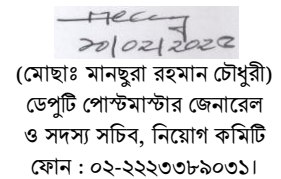 ২০/০২/২০২৫
(মোছাঃ মানছুরা রহমান চৌধুরী)
ডেপুটি পোস্টমাস্টার জেনারেল
ও সদস্য সচিব, নিয়োগ কমিটি
ফোন : ০২-২২২৩৩৮৯০৩১।